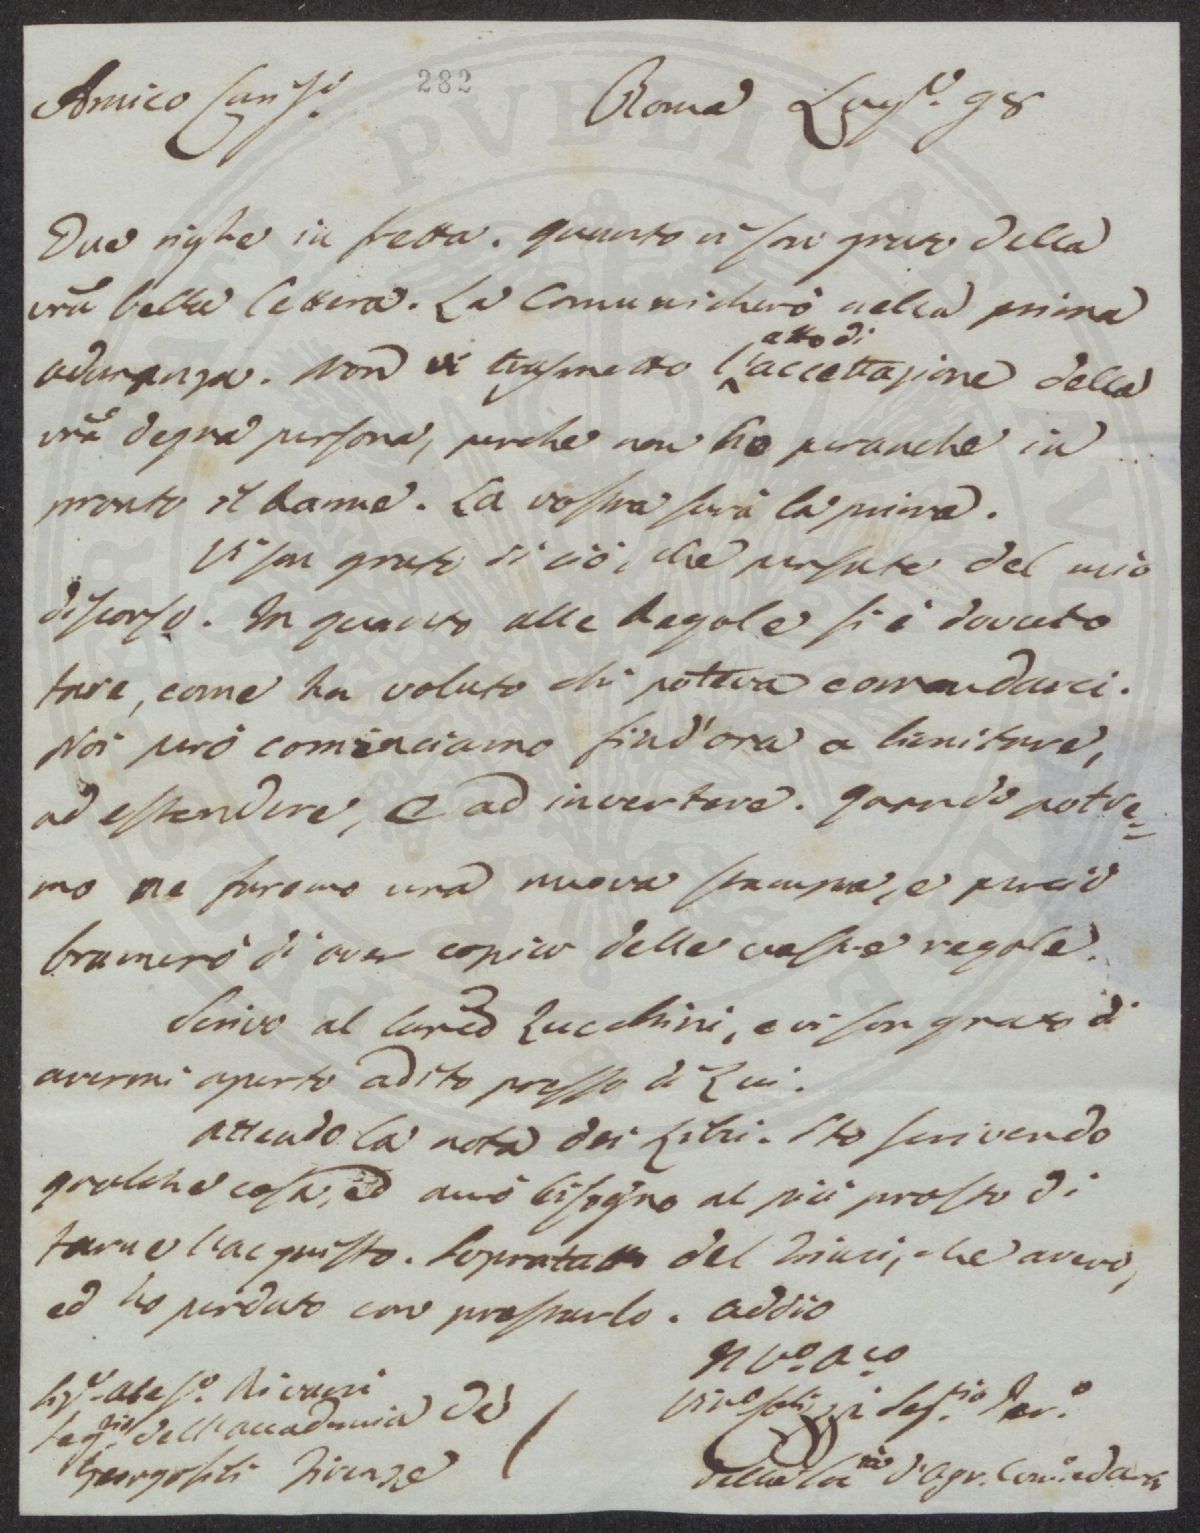 Amico Cariss.º 282 Roma Lug.º 98
Due righe in fretta. Quanto vi son grato della
vrã bella lettera. La comunicherò nella prima
adunanza. Non vi trasmetto l'accettazione della
atto di
vrã degna persona, perche non ho peranche in
pronto il Rame. La vostra sarà la prima.
Vi son grato di ciò, che pensate del mio
discorso. In quanto alle Regole si è dovuto
fare, come ha voluto chi poteva comandarci.
Noi però cominciamo find'ora a limitare,
ad estendere, e ad invertere. Quando potre=
mo ne faremo una nuova stampa, e perciò
bramerò di aver copia delle vostre regole.
Scrivo al Lucchini, e vi son grato di
avermi aperto adito presso di Lui.
Attendo la nota dei Libri. Sto scrivendo
qualche cosa, ed avrò bisogno al più presto di
farne l'acquisto. Sopratutto del che avevo,
ed ho perduto con prestarlo. Addio
Il Vº. Aco
Rivani
Seg.rio dell'Accademia de
Georgofili Firenze
Seg.rio Per.º
della Soc.tà d'Agr. Com.º ed Arti